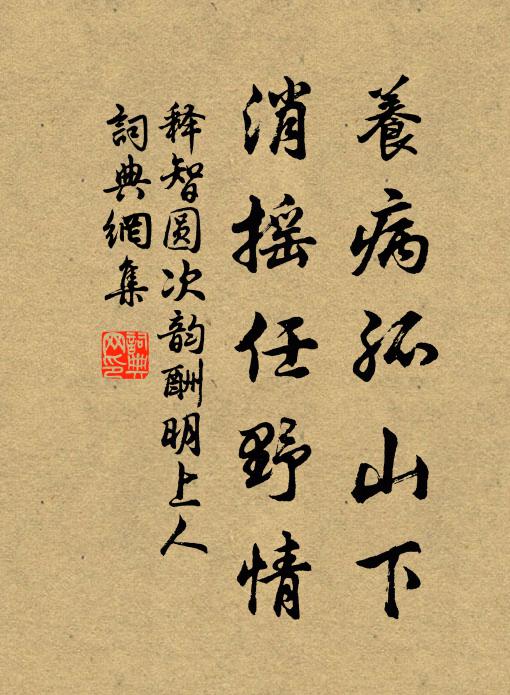 養病孤山下
消摇任野情
释智圆次韵酬明上人
詞典網集
詞典网印